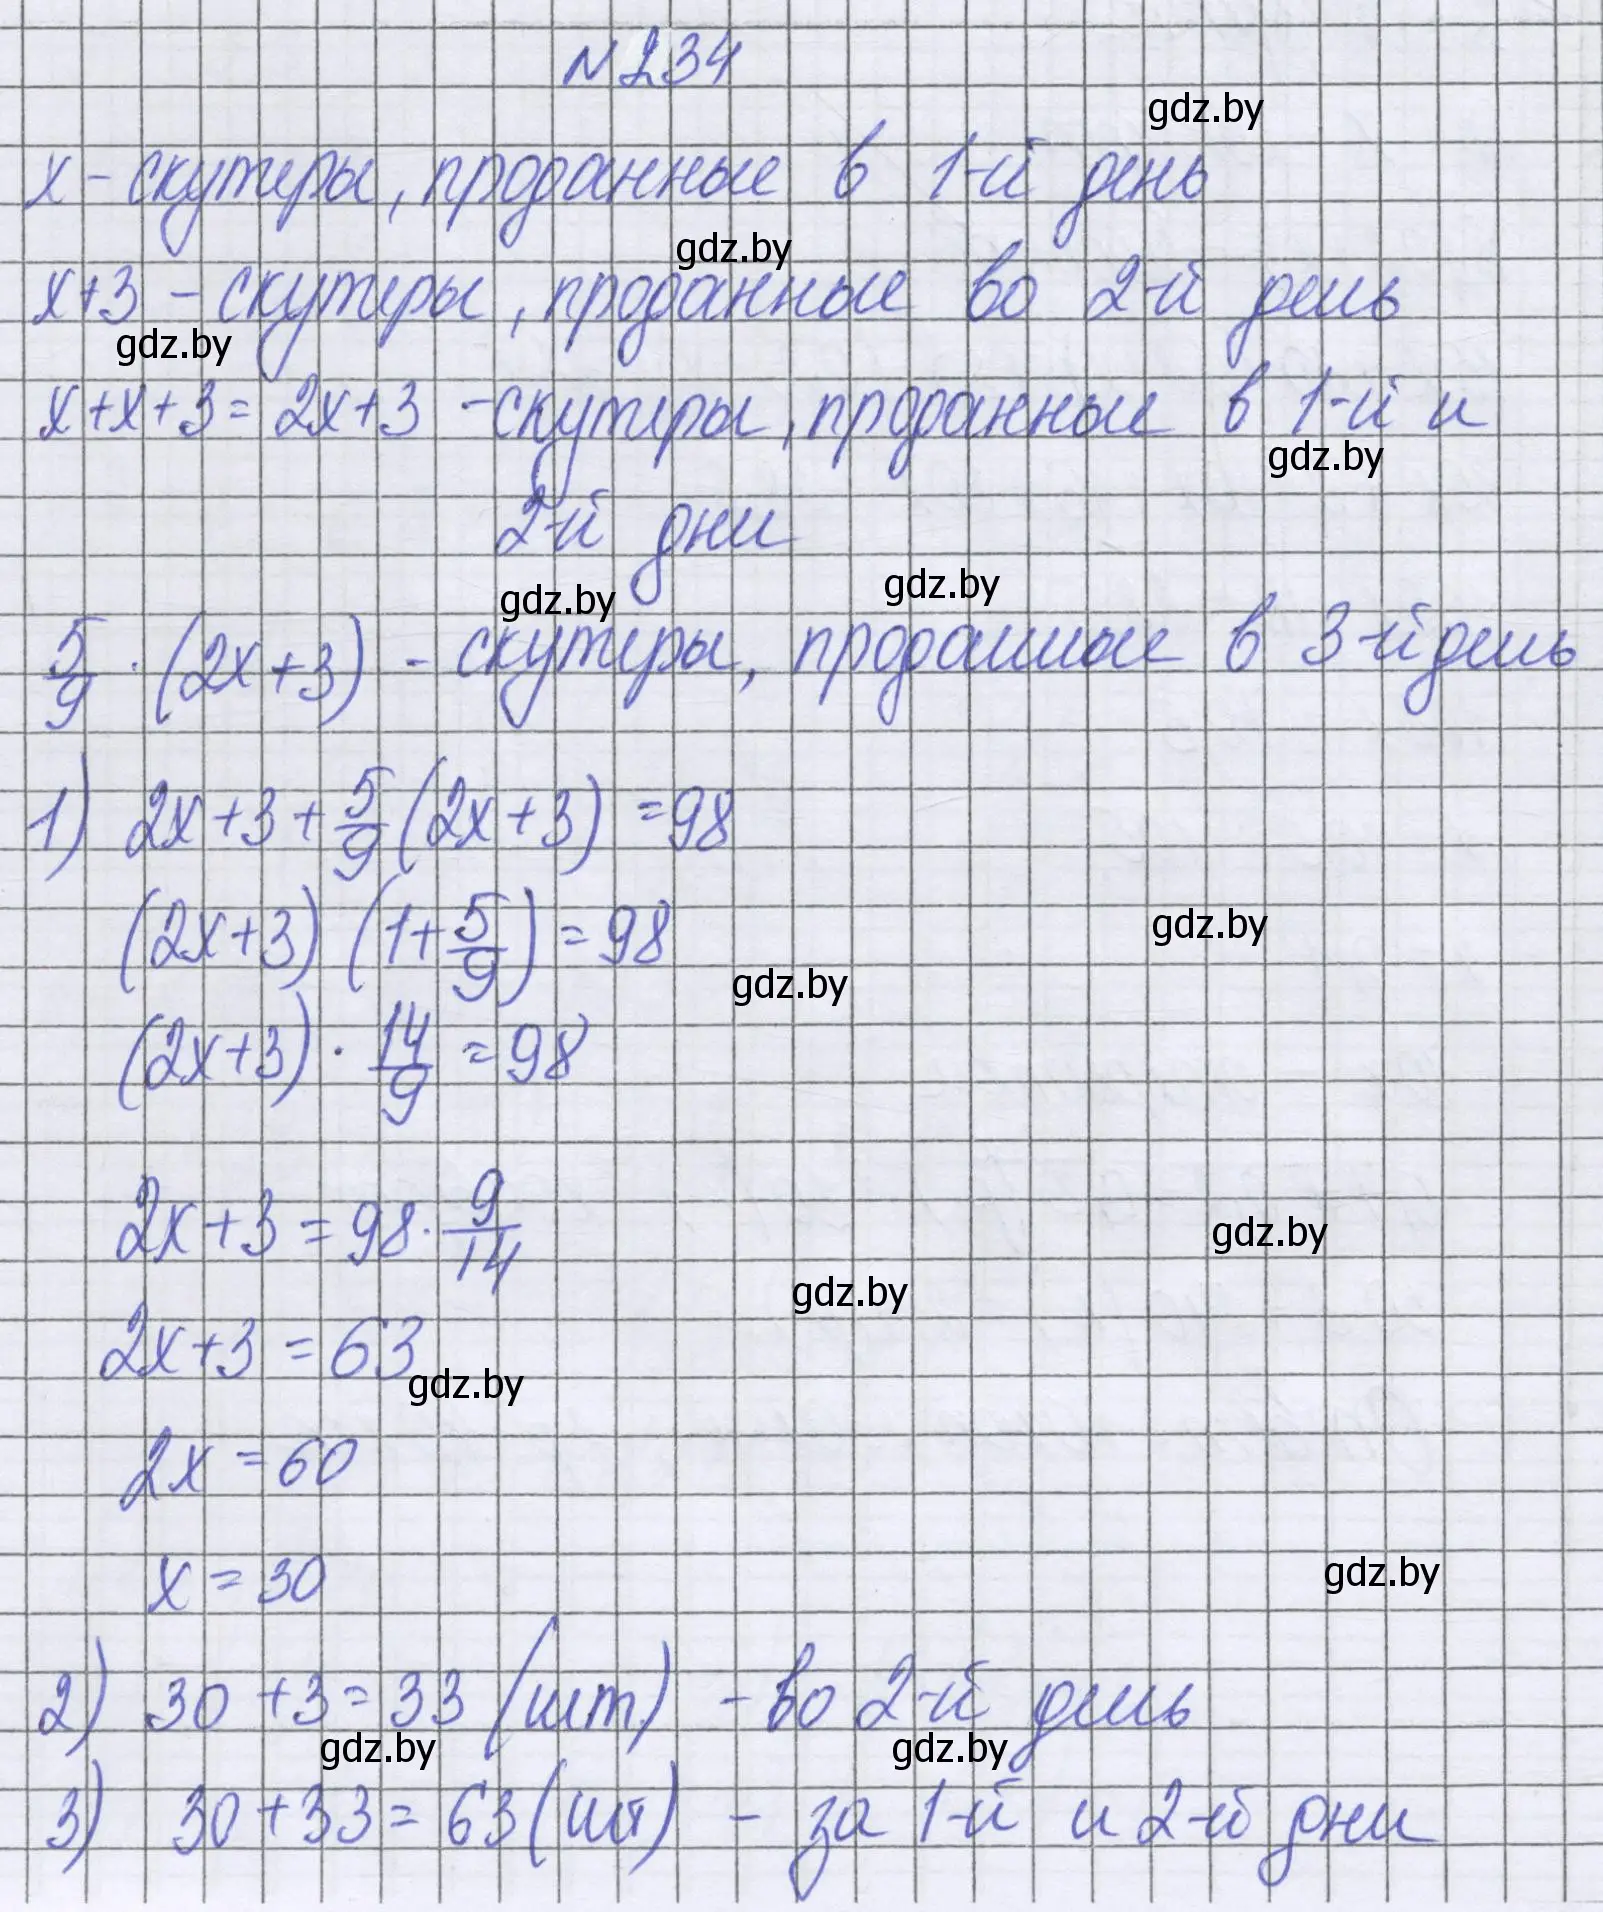 N 234
gdz.by
x – скутеры, проданные в 1-й день
gdz.by
x+3 – скутеры, проданные во 2-й день
gdz.by
x+x+3 = 2x+3 – скутеры, проданные в 1-й и
gdz.by
2-й дни
gdz.by
gdz.by
5/9 · (2x+3) – скутеры, проданные в 3-й день
1) 2x+3+5/9(2x+3) = 98
(2x+3)(1+5/9) = 98
gdz.by
gdz.by
(2x+3) · 14/9 = 98
2x+3 = 98 · 9/14
gdz.by
gdz.by
2x+3 = 63
gdz.by
2x = 60
x = 30
gdz.by
2) 30 + 3 = 33 (шт) – во 2-й день
gdz.by
gdz.by
3) 30 + 33 = 63 (шт) – за 1-й и 2-й дни